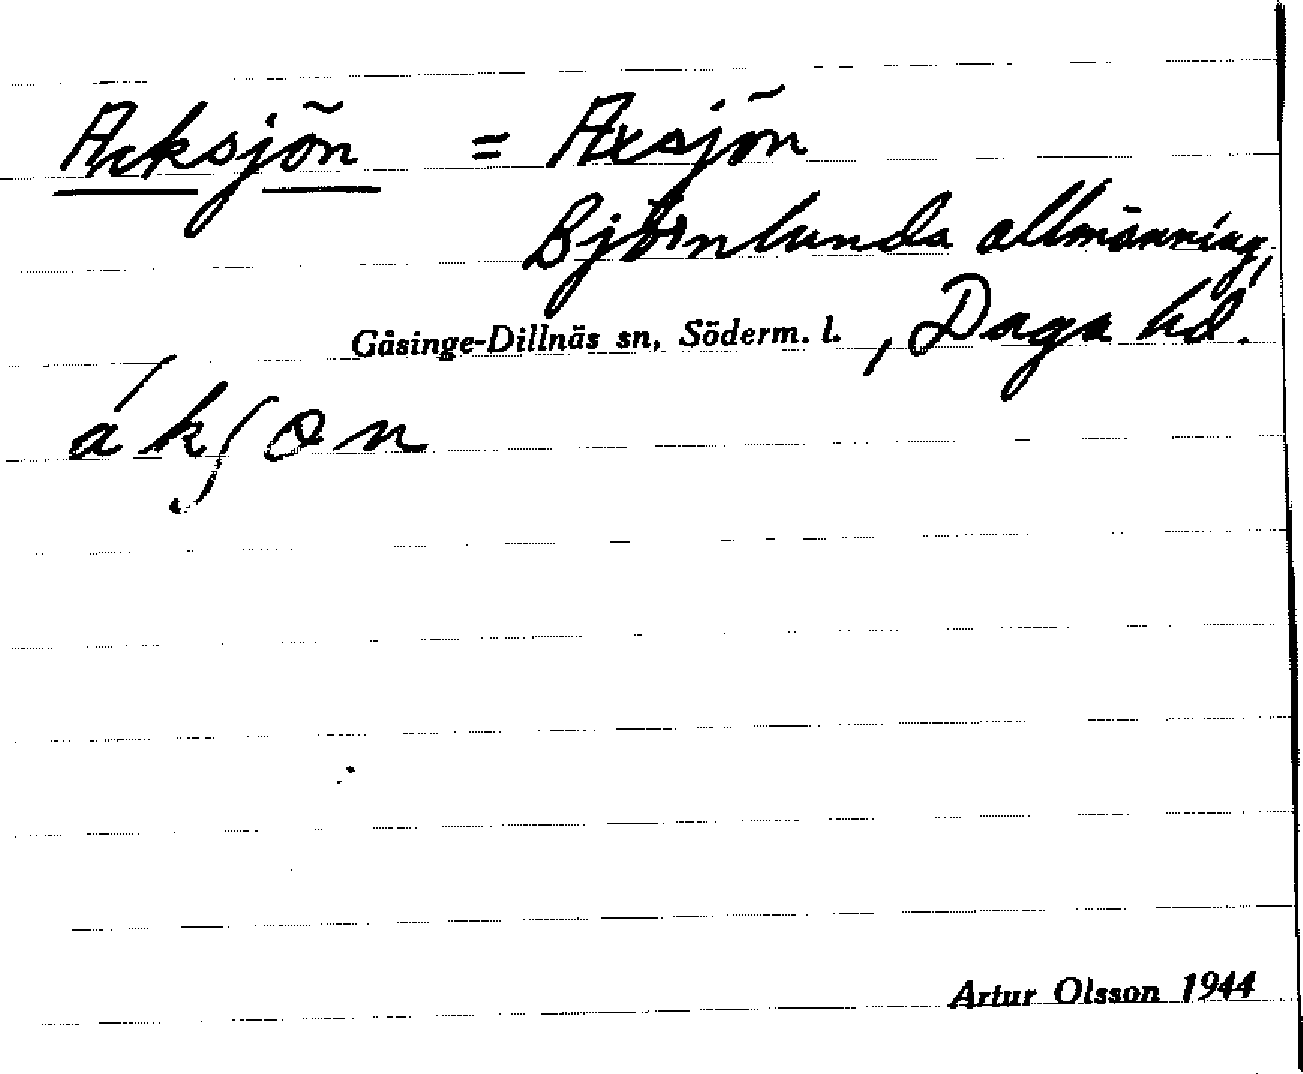 Acksjön = Axsjön
Björnlunda allmänning,
Gåsinge-Dillnäs sn, Söderm. l., Daga hd.
ákʃøn
Artur Olsson 1944